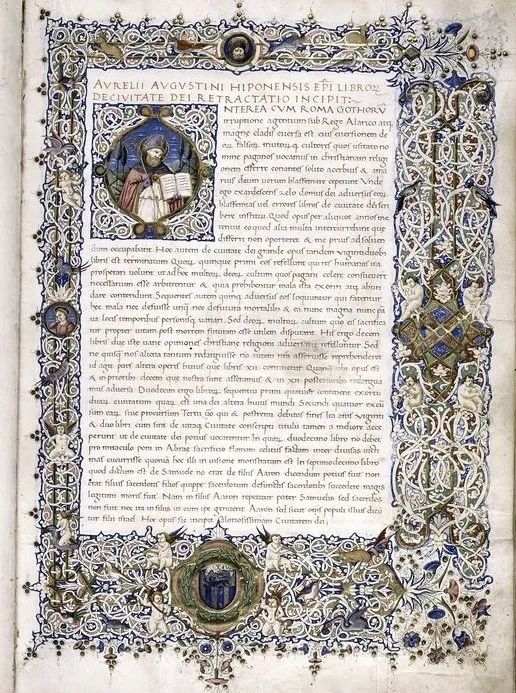 AVRELII AVGVSTINI HIPONENSIS EPI LIBROR
DE CIVITATE DEI RETRACTATIO INCIPIT:
NTEREA CVM ROMA GOTHORV
irruptione agentium sub Rege Alarico atq
magne cladis eversa est eius eversionem de
or falsor multor q cultores quos usitato no
mine paganos uocamus in christianam religi
onem referre conantes solito acerbius & ama
rius deum uerum blasfemare ceperunt Vnde
ego exardescens zelo domus dei adversus eor
blasfemias uel errores libros de civitate dei scri
bere institui Quod opus per aliquot annos me
tenuit eo quod alia multa intercurrebant que
differri non oporteret & me prius ad soluen
dum occupabant Hoc autem de civitate dei grande opus tandem viginti duob
libris est terminatum Quor quinque primi eos refellunt qui res humanas ita
prosperari uolunt ut ad hoc multor deor cultum quos pagani colere consueuer
necessarium esse arbitrentur & quia prohibentur mala ista exoriri atq abun
dare contendunt Sequentes autem quinq adversus eos loquuntur qui fatentur
hec mala nec defuisse unq nec defutura mortalibus & ea nunc magna nunc par
ua locis temporibus personisq uariari Sed deor multor cultum quo eis sacrifica
tur propter uitam post mortem futuram esse utilem disputant His ergo decem
libris due iste uane opiniones christiane religioni adversarie refelluntur Sed
ne quisq nos aliena tantum redarguisse non autem nostra asseruisse reprehenderet
id agit pars altera operis huius que libris xii continetur Quanq ubi opus est
& in prioribus decem que nostra sunt asseramus & in xii posterioribus redargua
mus adversa Duodecim ergo libror sequentium primi quatuor continent exortu
duar civitatum quar est una dei altera huius mundi Secundi quatuor excur
sum ear siue procursum Tertii qui & postremi debitos fines Ita omnes viginti
& duo libri cum sint de utraq Civitate conscripti titulum tamen a meliore acce
perunt ut de civitate dei potius uocarentur In quor duodecimo libro non debet
pro miraculo poni in Abrae sacrificio flammam celitus factam inter diuisas victi
mas cucurrisse quonia hoc illi in visione monstratum est In septimodecimo libro
quod dictum est de Samuele no erat de filiis Aaron dicendum potius fuit non
erat filius sacerdotis filios quippe sacerdotum defunctis sacerdotib succedere magis
legitimi moris fuit Nam in filiis Aaron reperitur pater Samuelis sed sacerdos
non fuit nec ita in filiis ut eum ipse genuerit Aaron sicut omnes populi illius dicun
tur filii israel Hoc opus sic incipit Gloriosissimam Civitatem dei;